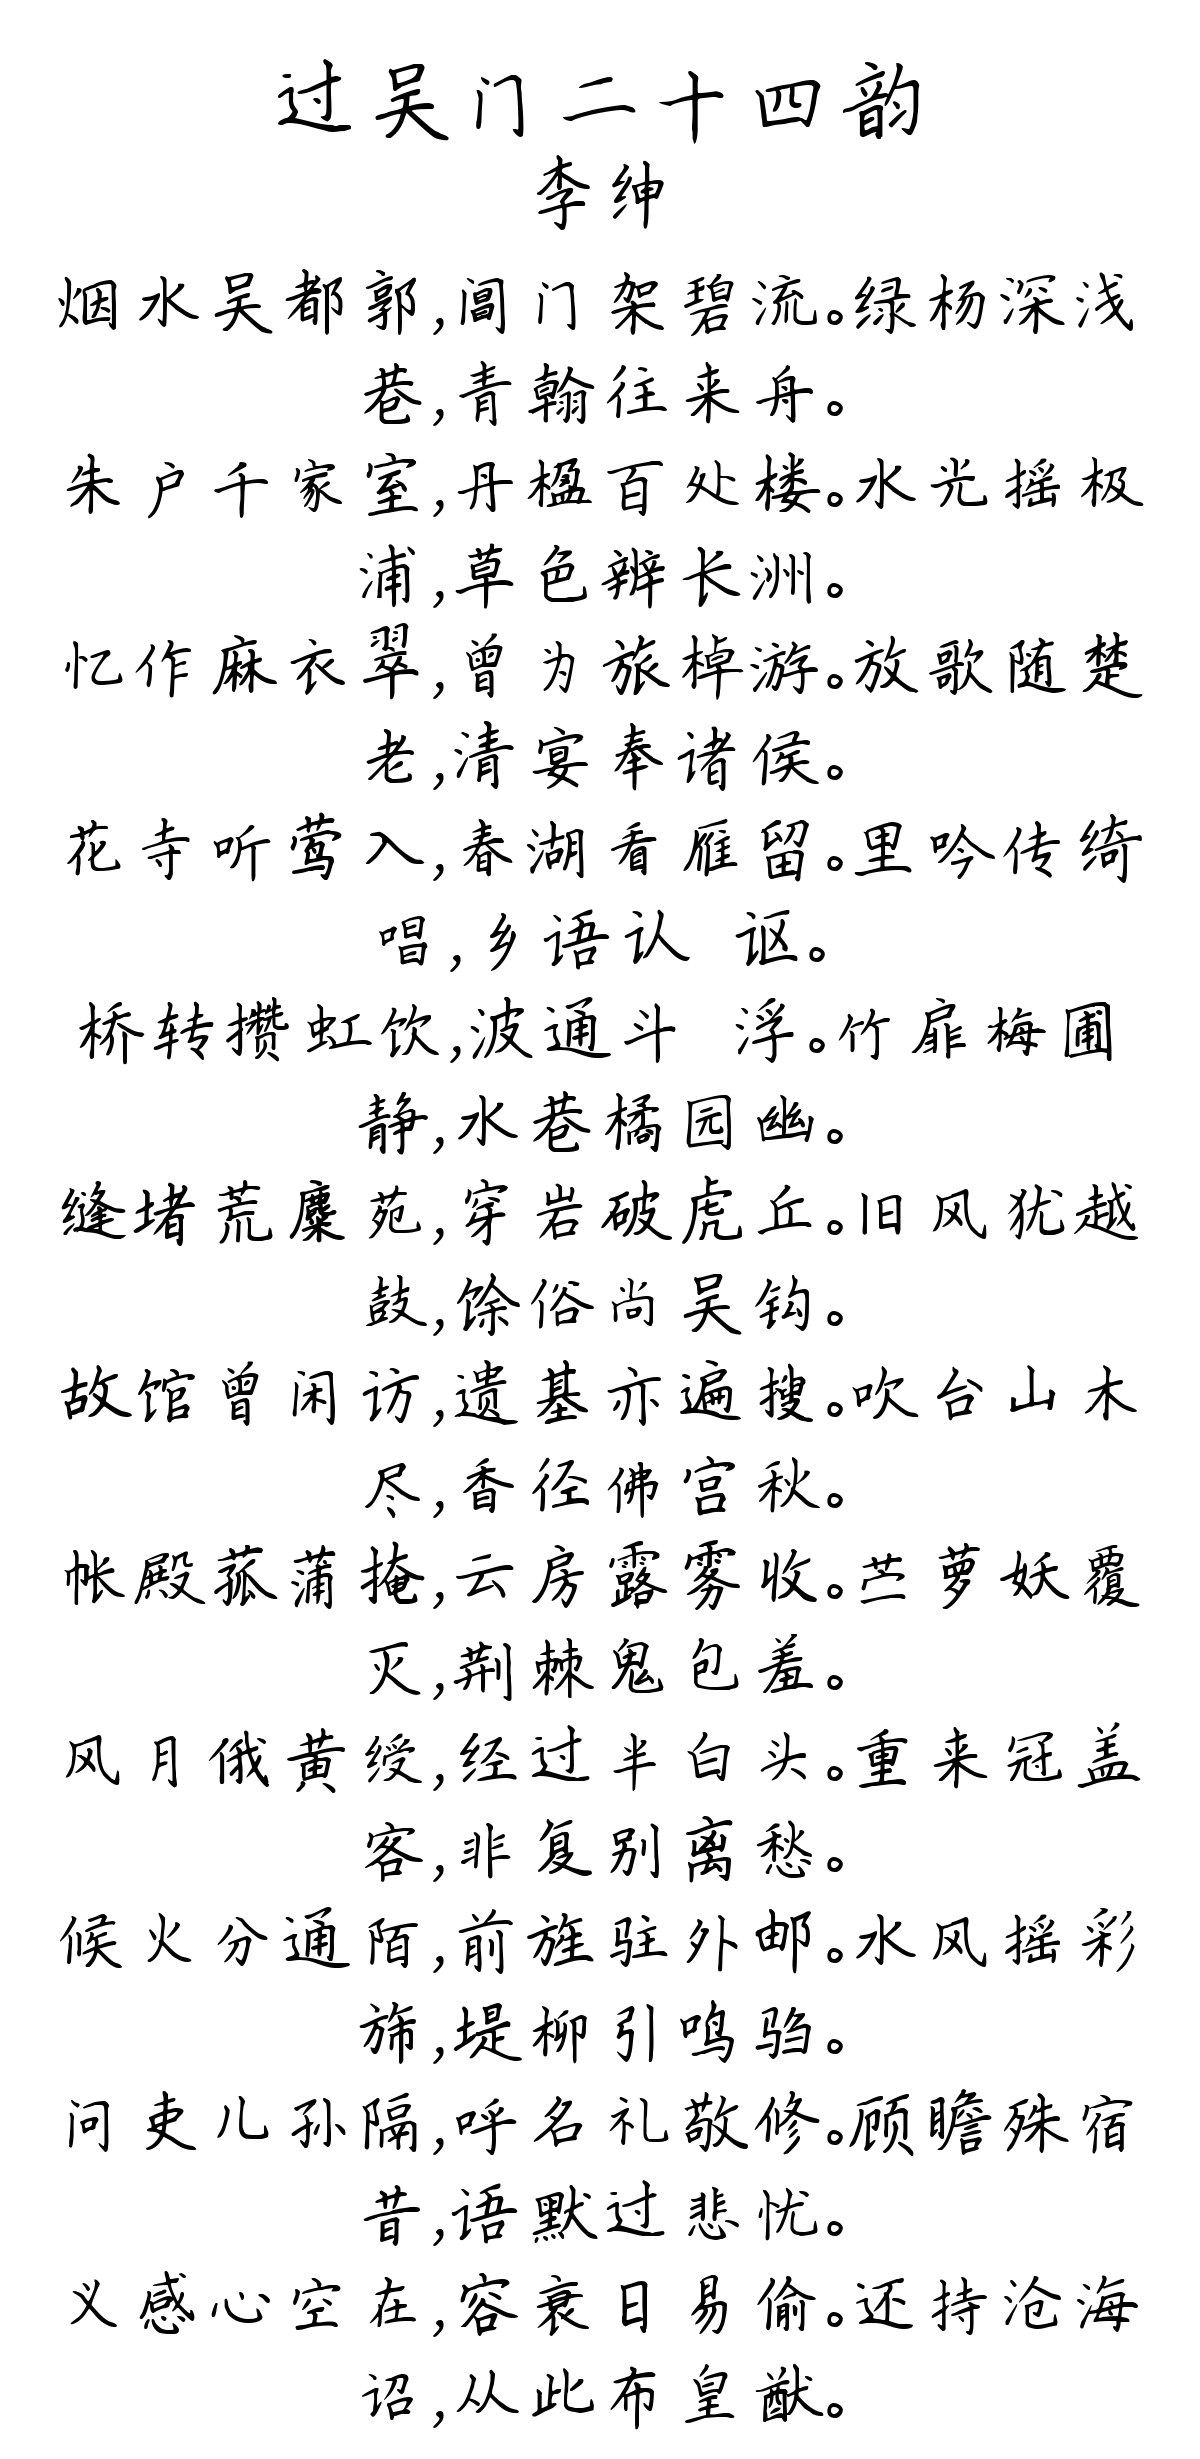 过吴门二十四韵
李绅
烟水吴都郭,阊门架碧流。绿杨深浅
巷,青翰往来舟。
朱户千家室,丹楹百处楼。水光摇极
浦,草色辨长洲。
忆作麻衣翠,曾为旅棹游。放歌随楚
老,清宴奉诸侯。
花寺听莺入,春湖看雁留。里吟传绮
唱,乡语认 讴。
桥转攒虹饮,波通斗 浮。竹扉梅圃
静,水巷橘园幽。
缝堵荒麋苑,穿岩破虎丘。旧风犹越
鼓,馀俗尚吴钩。
故馆曾闲访,遗基亦遍搜。吹台山木
尽,香径佛宫秋。
帐殿菰蒲掩,云房露雾收。苎萝妖覆
灭,荆棘鬼包羞。
风月俄黄绶,经过半白头。重来冠盖
客,非复别离愁。
候火分通陌,前旌驻外邮。水风摇彩
旆,堤柳引鸣驺。
问吏儿孙隔,呼名礼敬修。顾瞻殊宿
昔,语默过悲忧。
义感心空在,容衰日易偷。还持沧海
诏,从此布皇猷。